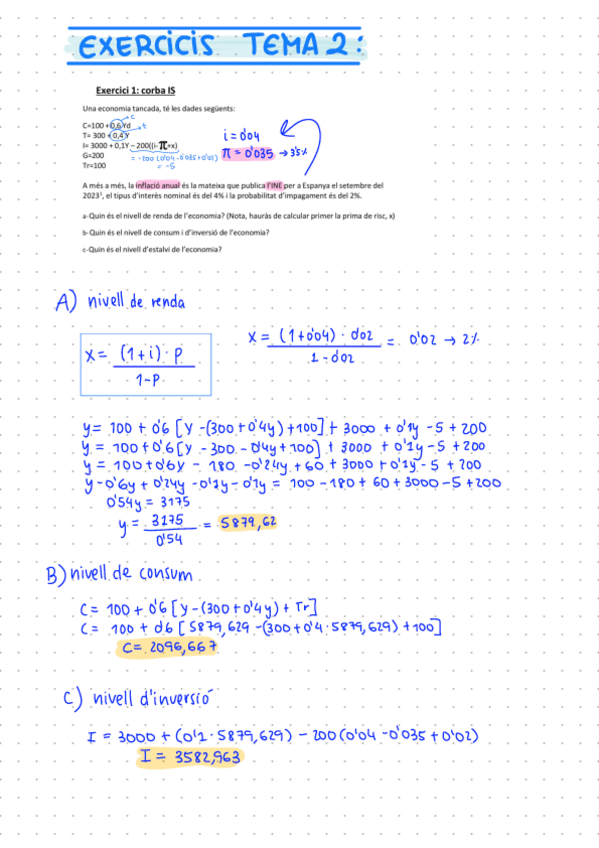 EXERCICIS TEMA 2:
Exercici 1: corba IS
Una economia tancada, té les dades següents:
C=100 + 0,6 Yd
c
T= 300 + 0,4 Y
t
I= 3000 + 0,1Y – 200((i-π+x)
= -200 (0'04 - 0'035 + 0'02)
= -5
G=200
Tr=100
i = 0'04
π = 0'035 → 3'5%
A més a més, la inflació anual és la mateixa que publica l'INE per a Espanya el setembre del
2023¹, el tipus d'interès nominal és del 4% i la probabilitat d'impagament és del 2%.
a-Quin és el nivell de renda de l'economia? (Nota, hauràs de calcular primer la prima de risc, x)
b- Quin és el nivell de consum i d'inversió de l'economia?
c-Quin és el nivell d'estalvi de l'economia?
A) nivell de renda
x = (1+i) · p / 1-p
x = (1+0'04) · 0'02 / 1-0'02 = 0'02 → 2%
y = 100 + 0'6 [y -(300 + 0'4y) +100] + 3000 + 0'1y -5 + 200
y = 100 + 0'6 [y - 300 - 0'4y + 100] + 3000 + 0'1y - 5 + 200
y = 100 + 0'6y - 180 - 0'24y + 60 + 3000 + 0'1y - 5 + 200
y - 0'6y + 0'24y - 0'1y - 0'1y = 100 - 180 + 60 + 3000 - 5 + 200
0'54y = 3175
y = 3175 / 0'54 = 5879,62
B) nivell de consum
C = 100 + 0'6 [y - (300 + 0'4y) + Tr]
C = 100 + 0'6 [5879,629 - (300 + 0'4 · 5879,629) + 100]
C = 2096,667
C) nivell d'inversió
I = 3000 + (0'1 · 5879,629) - 200 (0'04 - 0'035 + 0'02)
I = 3582,963